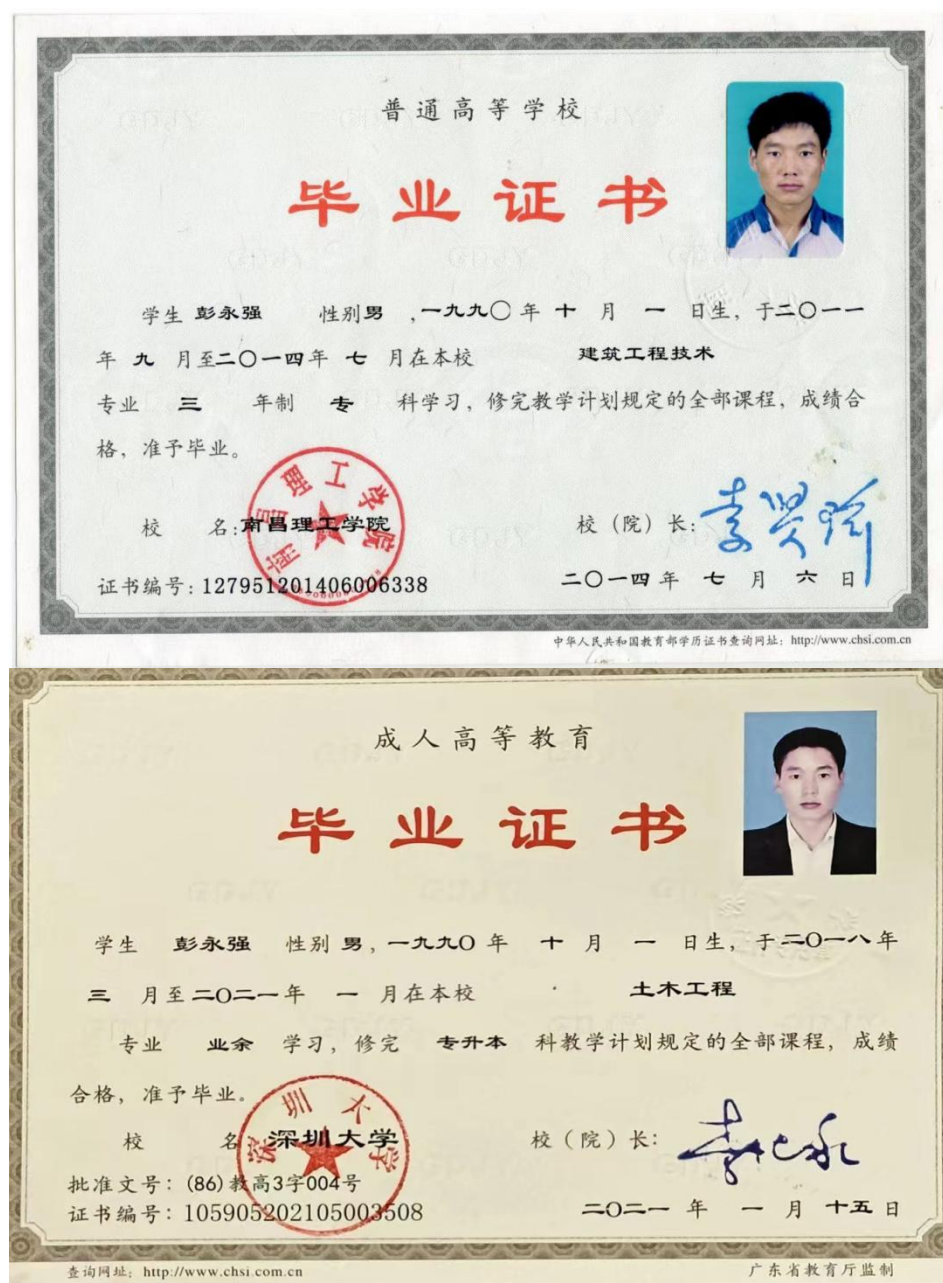 普通高等学校
毕业证书
学生 彭永强 性别 男 ,一九九〇 年 十 月 一 日生，于二〇一一
年 九 月至二〇一四年 七 月在本校 建筑工程技术
专业 三 年制 专 科学习，修完教学计划规定的全部课程，成绩合
格，准予毕业。
南昌理工学院
校 名:南昌理工学院 校（院）长:
证书编号:127951201406006338 二〇一四年 七 月 六 日
中华人民共和国教育部学历证书查询网址：http://www.chsi.com.cn
成人高等教育
毕业证书
学生 彭永强 性别 男，一九九〇 年 十 月 一 日生，于二〇一八年
三 月至二〇二一年 一 月在本校 土木工程
专业 业余 学习，修完 专升本 科教学计划规定的全部课程，成绩
合格，准予毕业。
深圳大学
校 名 深圳大学 校（院）长:
批准文号：(86)教高3字004号
证书编号：105905202105003508 二〇二一 年 一 月 十五 日
查询网址：http://www.chsi.com.cn 广东省教育厅监制